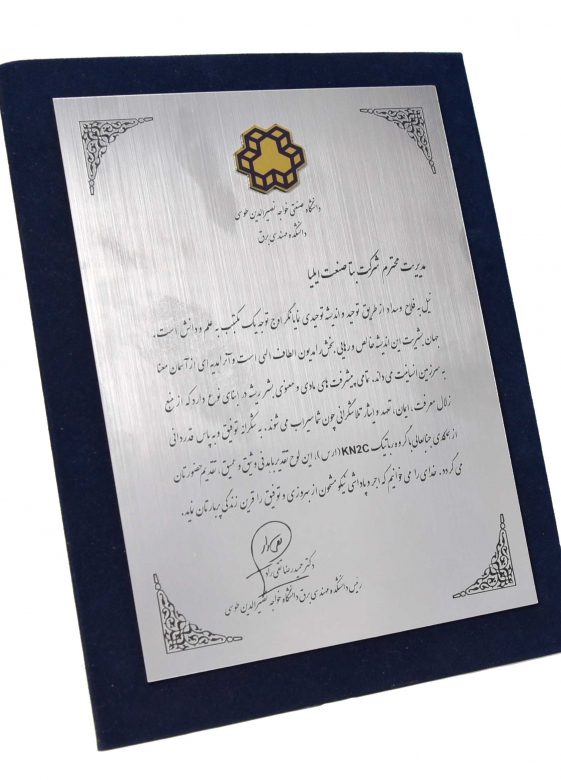 دانشگاه صنعتی خواجه نصیرالدین طوسی
دانشکده مهندسی برق
مدیریت محترم شرکت بتا صنعت ایلیا
نیل به فلاح و سداد از طریق توحید و اندیشه توحیدی نمایانگر اوج توجه یک مکتب به علم و دانش است.
جهان بشریت این اندیشه خالص و رهایی بخش را مدیون الطاف الهی است و آنرا هدیه ای از آسمان معنا
به سرزمین انسانیت می داند. تمامی پیشرفت های مادی و معنوی بشر ریشه در ابنای نوع دارد که از منبع
زلال معرفت، ایمان، تعهد و ایثار تلاشگرانی چون شما سیراب می شوند. به شکرانه توفیق و به پاس قدردانی
از همکاری جنابعالی با گروه رباتیک KN2C (ارس)، این لوح تقدیر با مدنی وثیق و عمیق، تقدیم حضورتان
می گردد. خدای را می خوانیم که اجر و پاداشی نیکو مشحون از بهروزی و توفیق را قرین زندگی پربارتان نماید.
دکتر حمیدرضا تقی راد
رئیس دانشکده مهندسی برق دانشگاه خواجه نصیرالدین طوسی